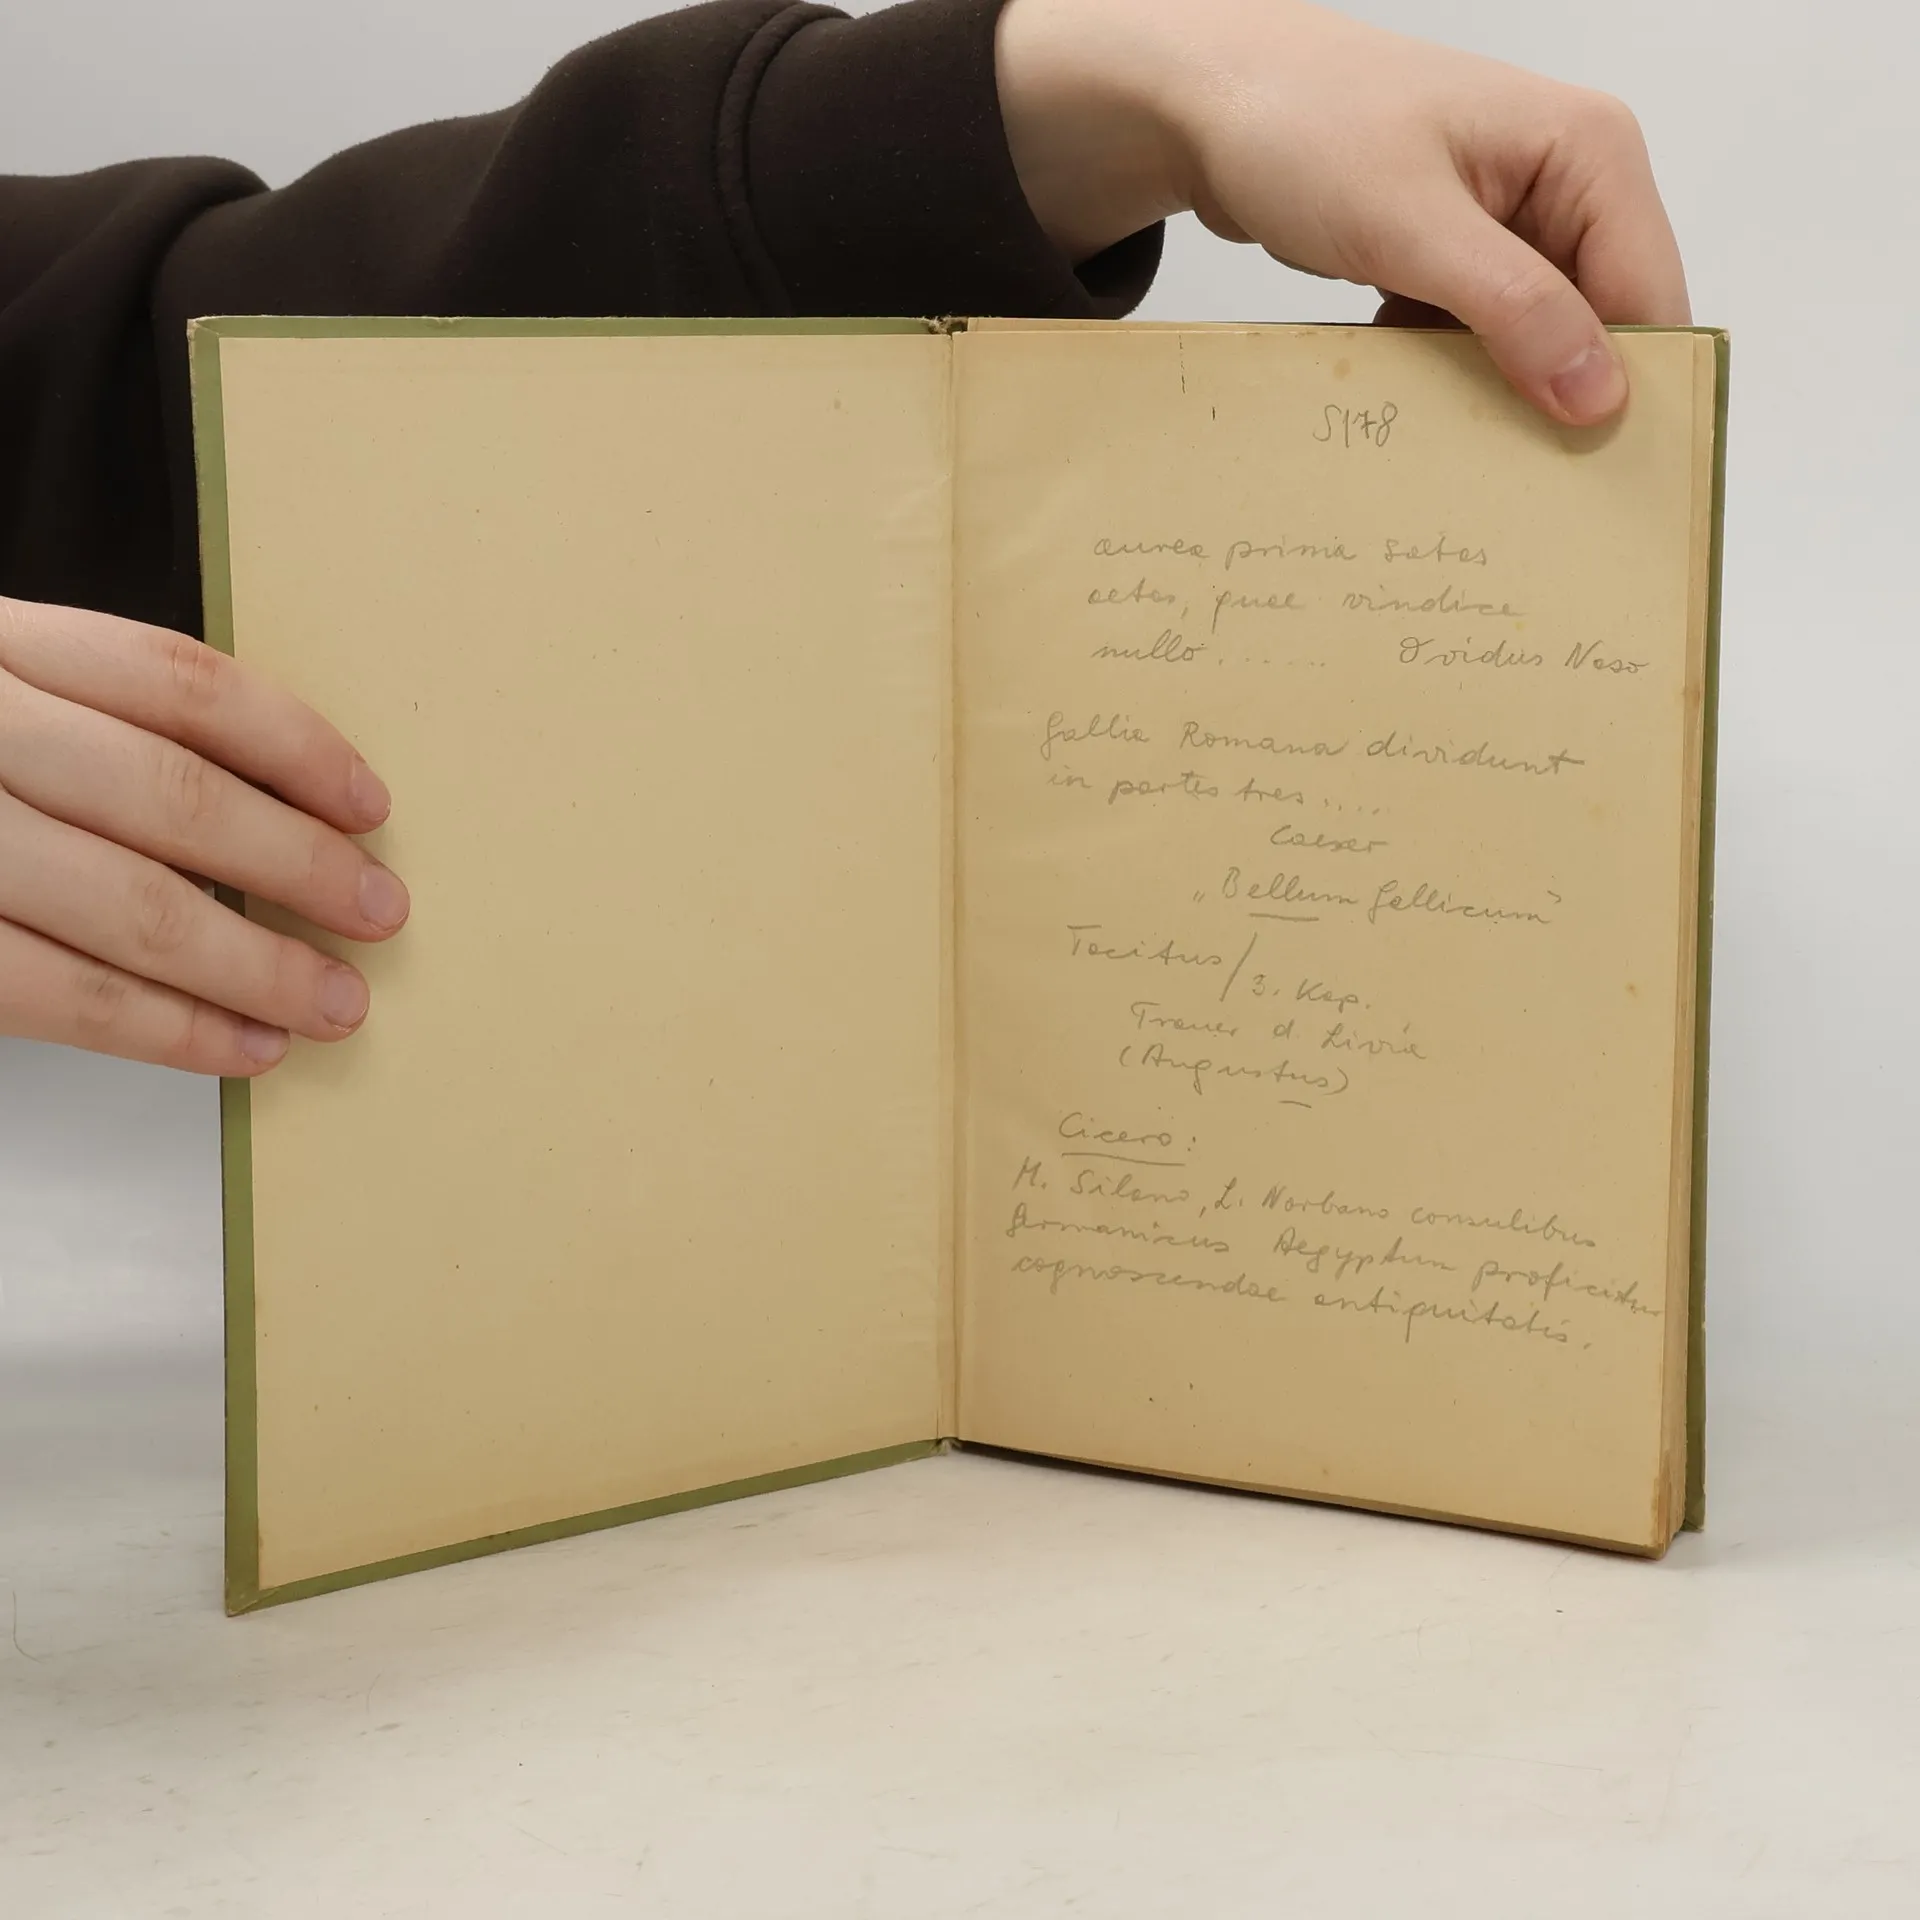 S178
aurea prima satas
aetas, quae vindice
nullo ...... Ovidus Naso
Gallia Romana dividunt
in partes tres .....
Caesar
„Bellum Gallicum"
Tacitus / 3. Kap.
Trauer d. Livia
(Augustus)
Cicero:
M. Silano, L. Norbano consulibus
Germanicus Aegyptum proficitur
cognoscendae antiquitatis.